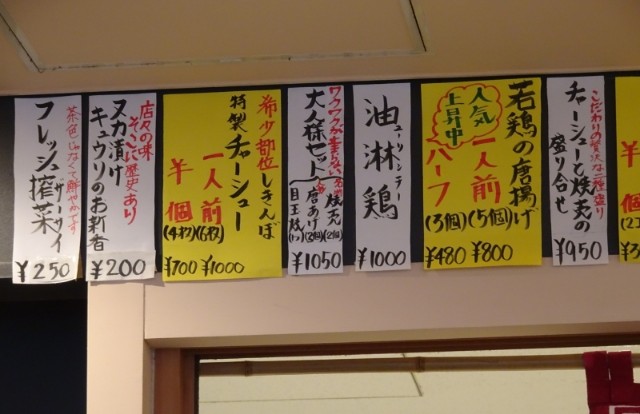 こだわりの贅沢な二種盛り
チャーシューと焼売の
盛り合せ
¥950
若鶏の唐揚げ
人気
上昇中
一人前(5個)
ハーフ(3個)
¥480 ¥800
ユーリンチー
油淋鶏
¥1000
大人様セット
焼売(2個)
唐あげ(2個)
目玉焼(1つ)
¥1050
希少部位しきんぼ
特製チャーシュー
一人前(6枚)
半個(4枚)
¥700 ¥1000
店々の味
そこに歴史あり
ヌカ漬け
キュウリのお新香
¥200
茶色じゃなくて鮮やかです
フレッシュ搾菜
ザーサイ
¥250